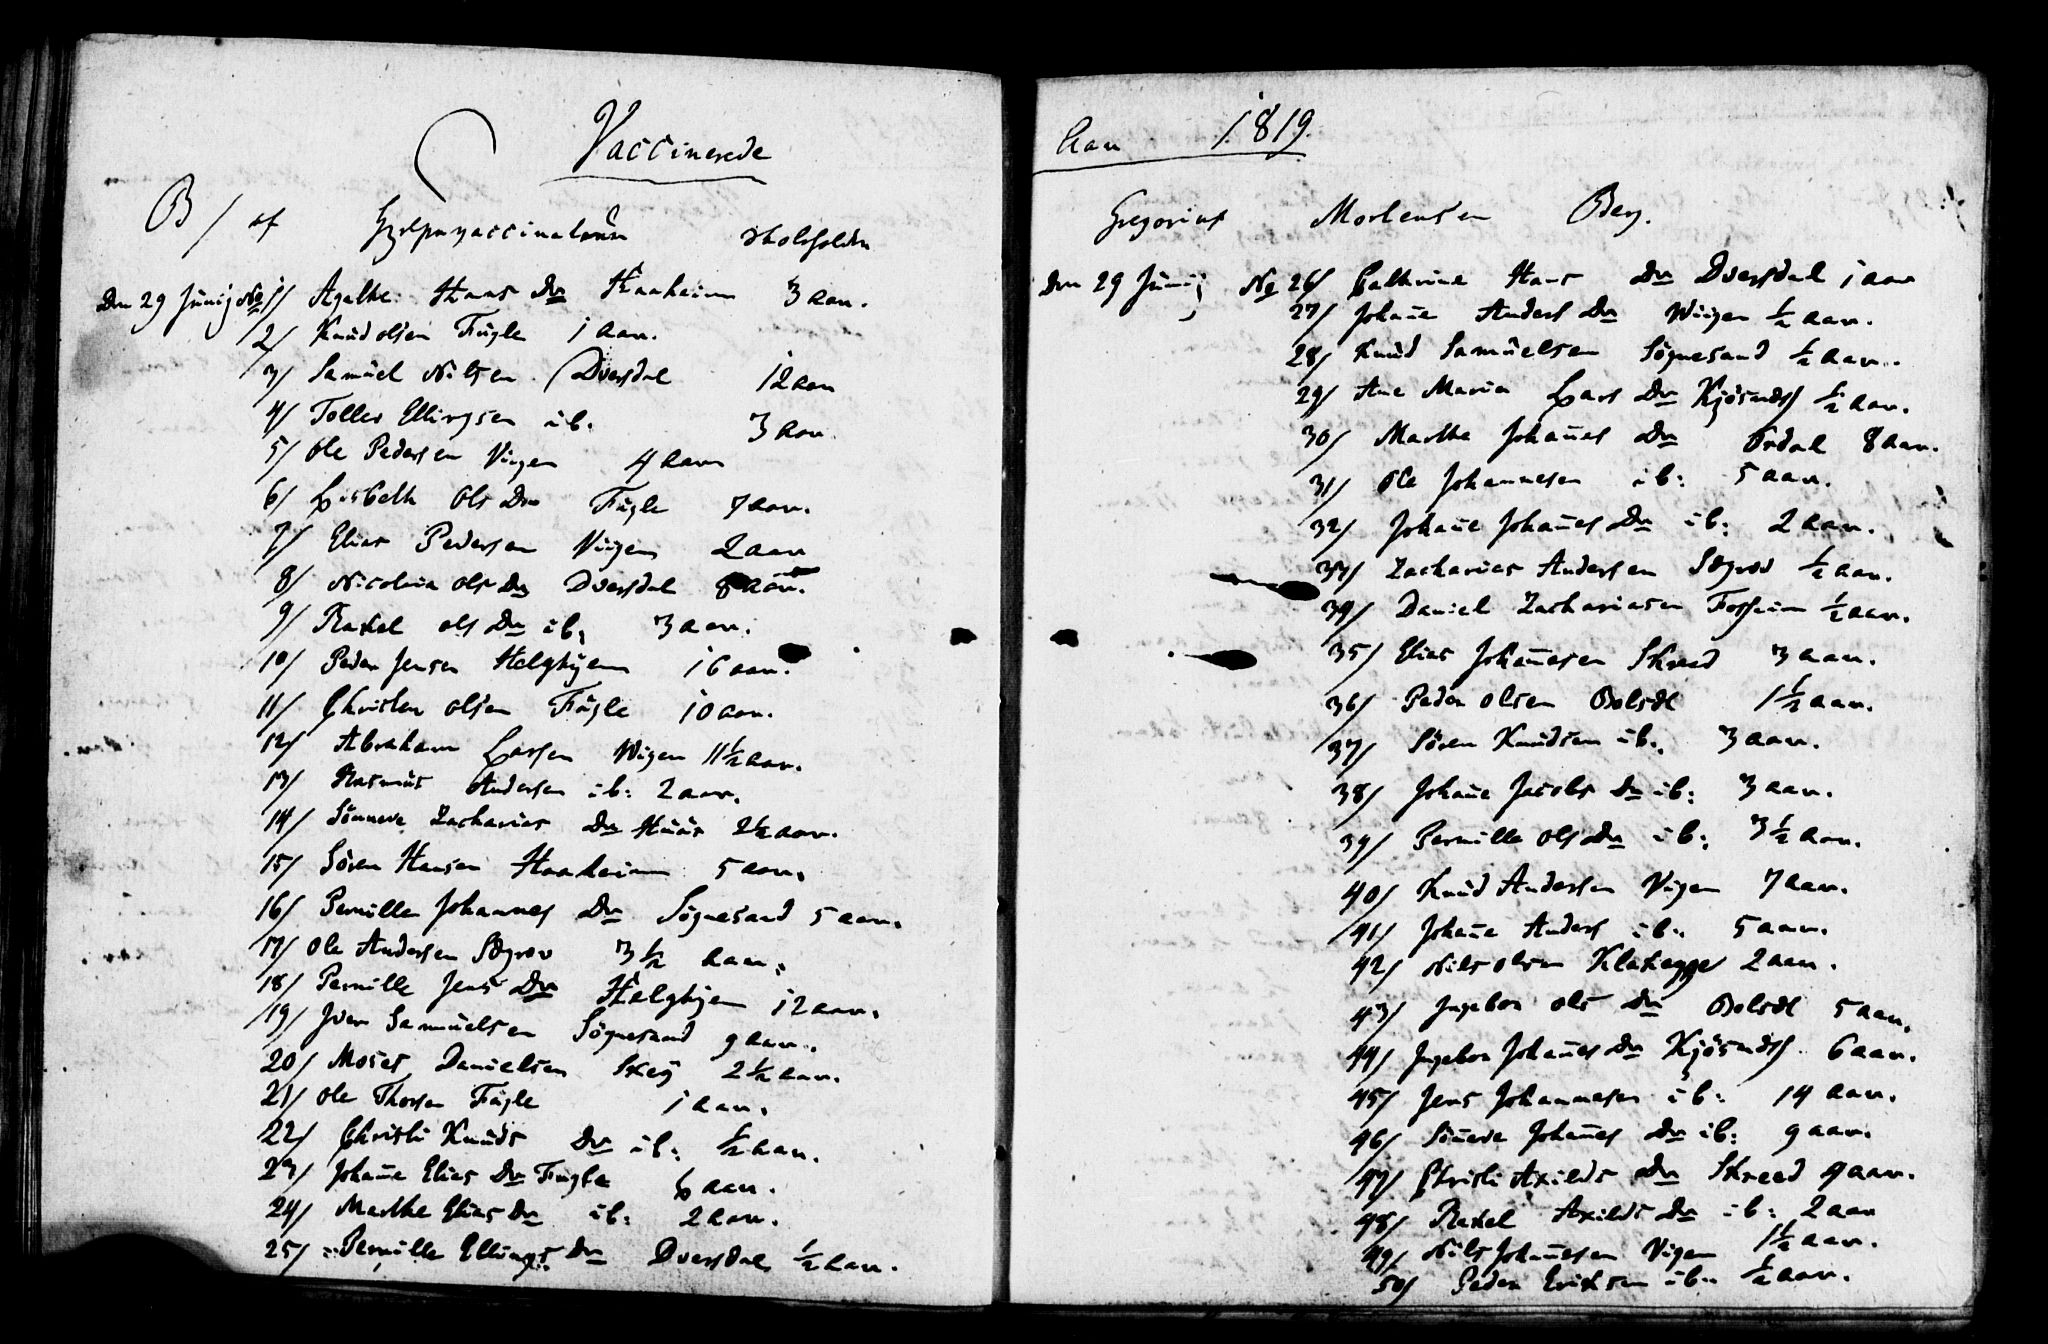 Vaccinerede
B/ af Hjelpevaccinateur skoleholder
Den 29 Junij No 1/ Agathe Hans Dr Haaheim 3 aar.
2/ Knud olsen Fugle 1 aar.
3/ Samuel Nilsen Dvergdal 12 aar
4/ Tollev Ellingsen ib. 3 aar.
5/ Ole Pedersen Viigen 4 aar
6/ Lisbeth Ols Dr Fugle 7 aar.
7/ Elias Pedersen Viigen 2 aar
8/ Nicolina ols Dr Dvergdal 8 aar.
9/ Rakel ols Dr ib. 3 aar.
10/ Peder Jensen Helghjem 16 aar.
11/ Christen olsen Fugle 10 aar.
12/ Abraham Larsen Viigen 11½ aar.
13/ Rasmus Andersen ib: 2 aar.
14/ Sönneve Zacharias Dr Huus 2½ aar.
15/ Sören Hansen Haaheim 5 aar.
16/ Pernille Johannes Dr Sögnesand 5 aar.
17/ Ole Andersen Sögrov 3½ aar.
18/ Pernille Jens Dr Helghjem 12 aar.
19/ Iver Samuelsen Sögnesand 9 aar.
20/ Moses Danielsen 2½ aar.
21/ Ole Thorsen Fugle 1 aar.
22/ Christi Knuds Dr ib: ½ aar.
23/ Johane Elias Dr Fugle 6 aar.
24/ Marthe Elias Dr ib: 2 aar.
25/ Pernille Ellings Dr Dvergdal ½ aar.
Aar 1819.
Gregorius Mortensen Berg.
Den 29 Junij No 26/ Cathrine Hans Dr Dvergdal 1 aar
27/ Johane Anders Dr Viigen ½ aar.
28/ Knud Samuelsen Sögnesand ½ aar.
29/ Ane Maria Lars Dr Kjösnæs ½ aar.
30/ Marthe Johanes Dr Ordal 8 aar.
31/ Ole Johannesen ib: 5 aar.
32/ Johane Johanes Dr ib: 2 aar.
33/ Zacharias Andersen Sögrov ½ aar.
34/ Daniel Zachariasen Fosheim ½ aar.
35/ Elias Johanesen Skreed 3 aar.
36/ Peder olsen Bolsæt 1½ aar.
37/ Sören Knudsen ib. 3 aar.
38/ Johane Jacobs Dr ib: 3 aar.
39/ Pernille ols Dr ib: 3½ aar.
40/ Knud Andersen Viigen 7 aar.
41/ Johane Anders ib. 5 aar.
42/ Nils olsen Klakegge 2 aar.
43/ Ingebor ols Dr Bolsæt 5 aar.
44/ Ingebor Johanes Dr Kjösnæs 6 aar.
45/ Jens Johannesen ib: 14 aar.
46/ Söneve Johanes Dr ib: 9 aar.
47/ Christi Axilds Dr Skreed 9 aar.
48/ Rakel Axilds Dr ib: 2 aar
49/ Nils Johanesen Viigen 1½ aar.
50/ Peder Eriksen ib. ½ aar.